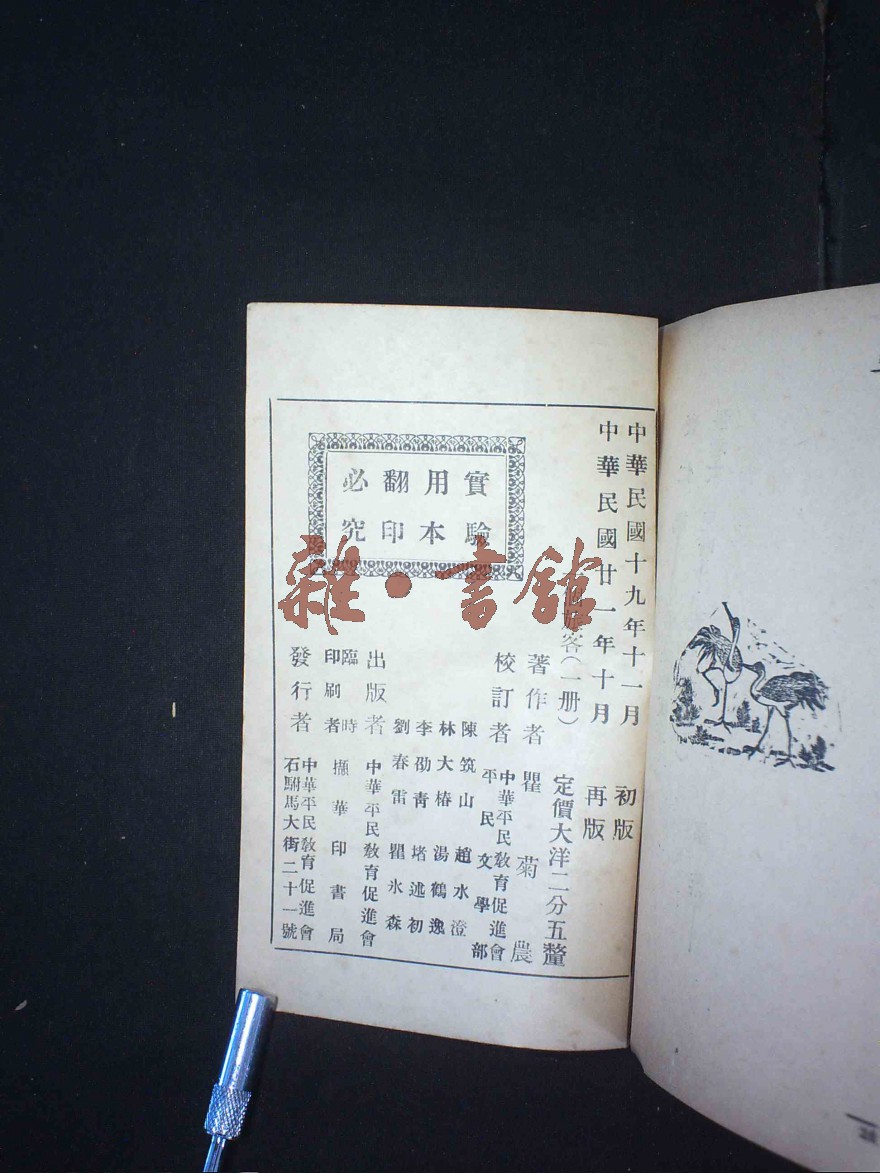 中華民國十九年十一月 初版
中華民國廿一年十月 再版
旅客（一册）
定價大洋二分五釐
著作者 瞿菊農
校訂者
中華平民教育促進會
平民文學部
陳筑山 趙水澄
林大椿 湯鶴逸
李劭青 堵述初
劉春雷 瞿氷森
出版者 中華平民教育促進會
臨時
印刷者 擷華印書局
發行者
中華平民教育促進會
石駙馬大街二十一號
實驗
用本
翻印
必究
雜·書館